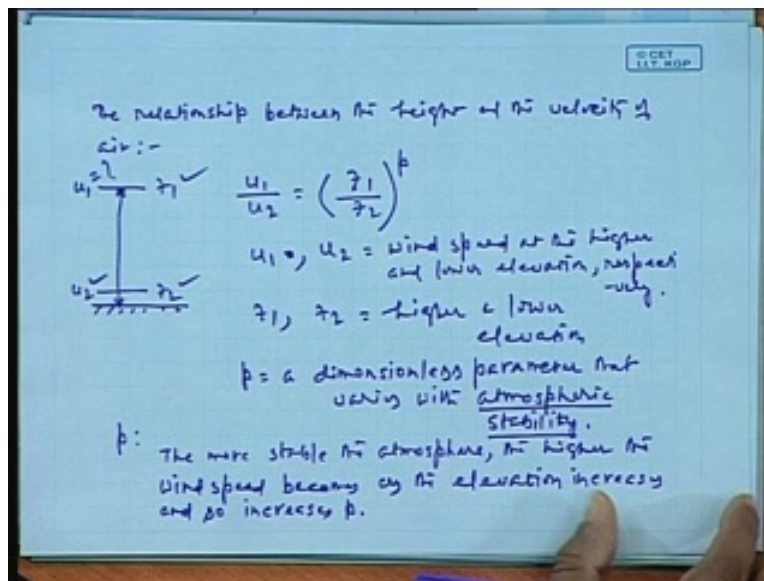 © CET
I.I.T. KGP
The relationship between the height and the velocity of
air :-
u1 = ? z1 ✓
u1/u2 = (z1/z2)^p
u1, u2 = wind speed at the higher
and lower elevation, respecti
-vely.
u2 ✓ z2 ✓
z1, z2 = higher & lower
elevation
p = a dimensionless parameter that
varies with atmospheric
stability.
p:
The more stable the atmosphere, the higher the
wind speed becomes as the elevation increases
and so increases p.